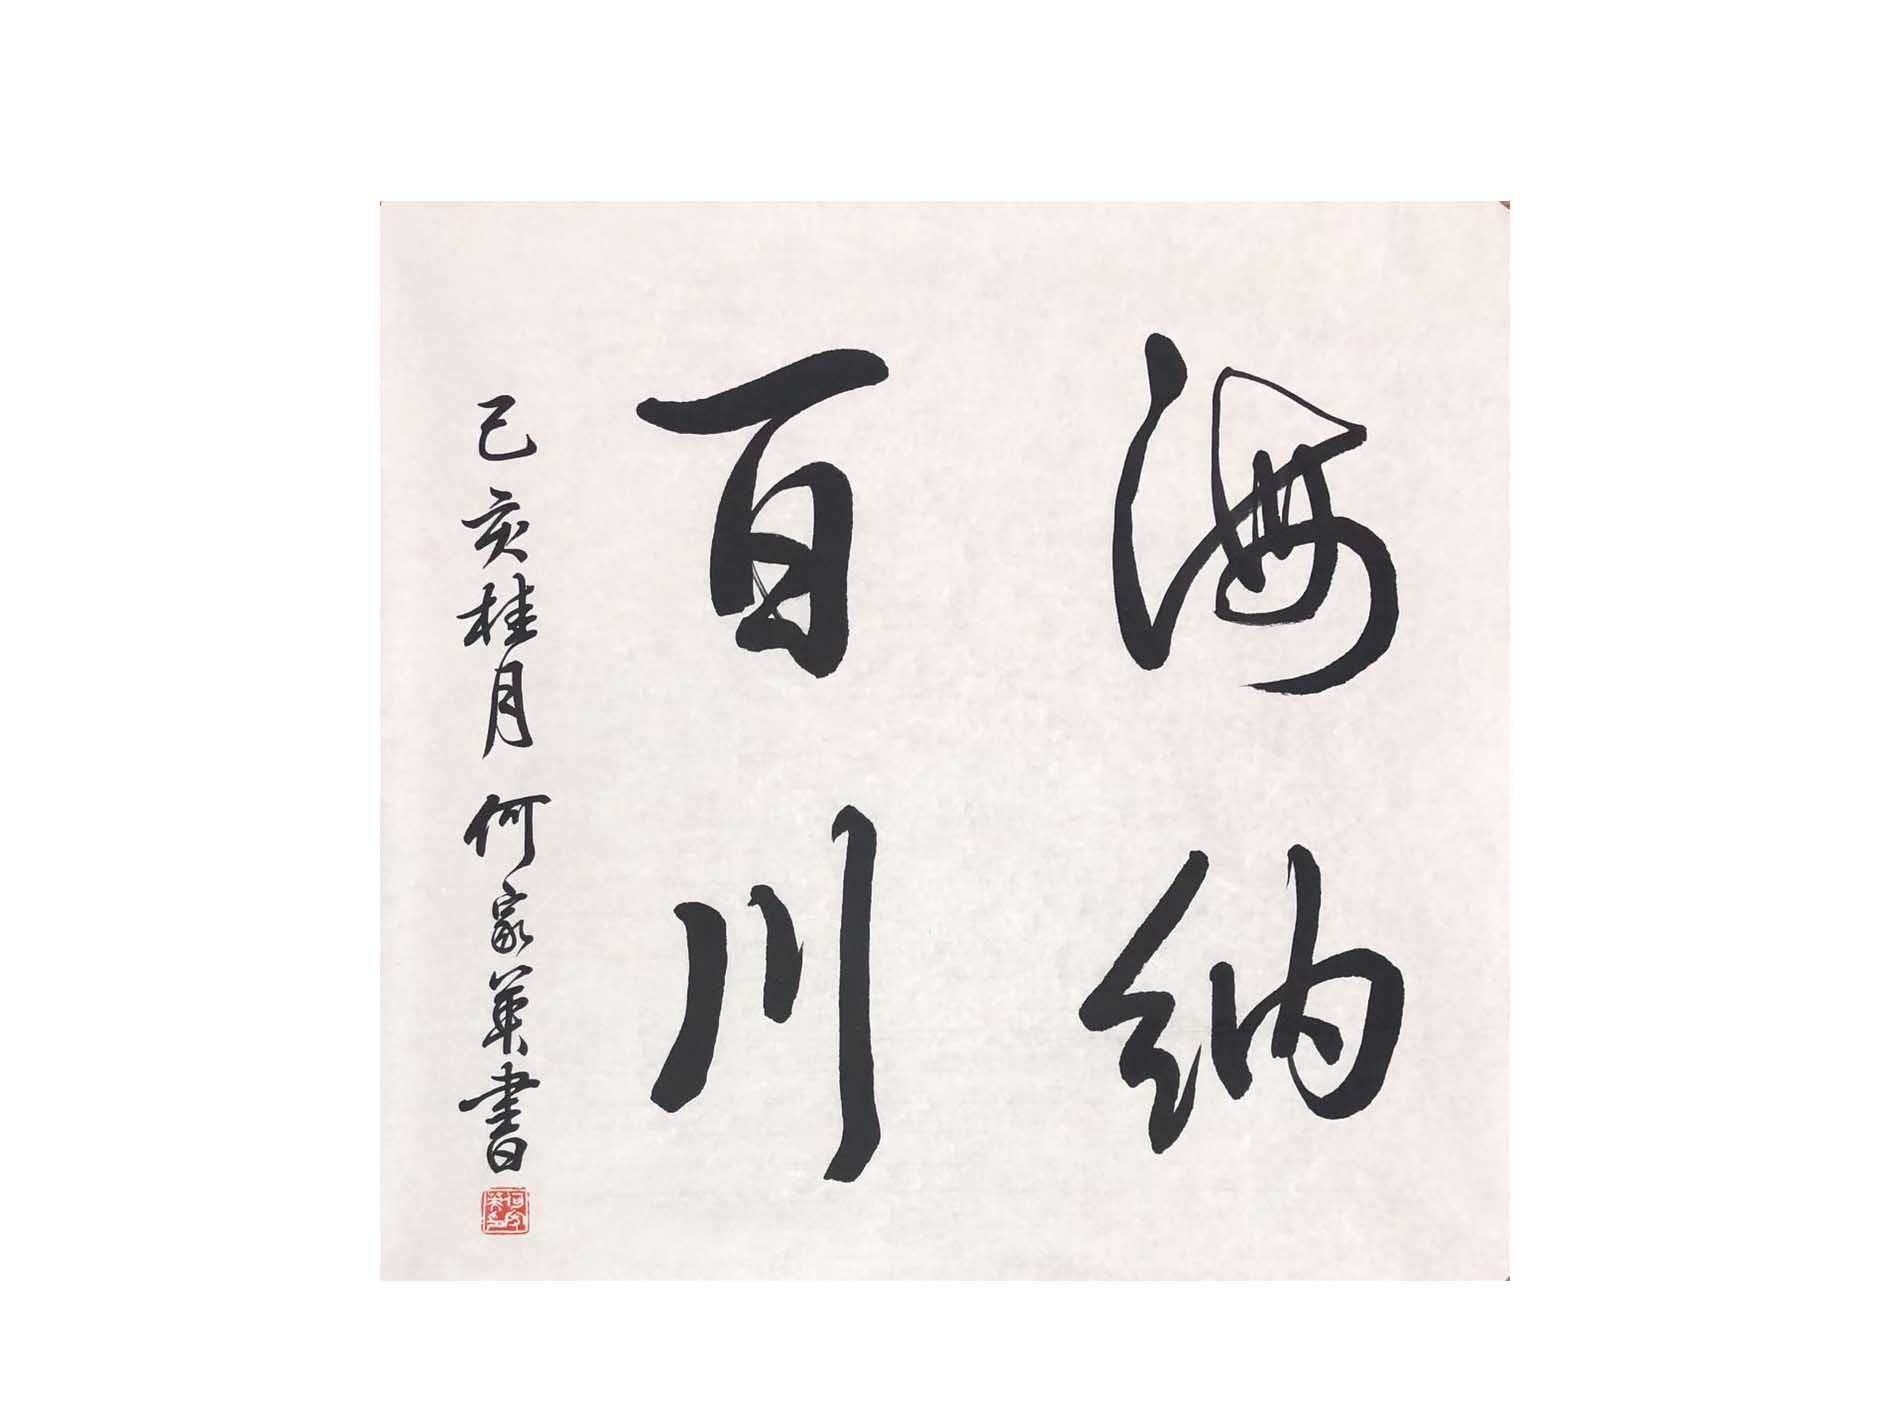 海纳
百川
己亥桂月 何家英書